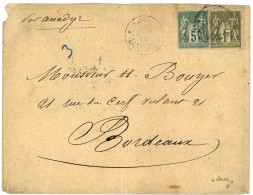 par Anadyr
3
5
1
Monsieur H. Bouyer
21 rue du cerf volant 21
Bordeaux